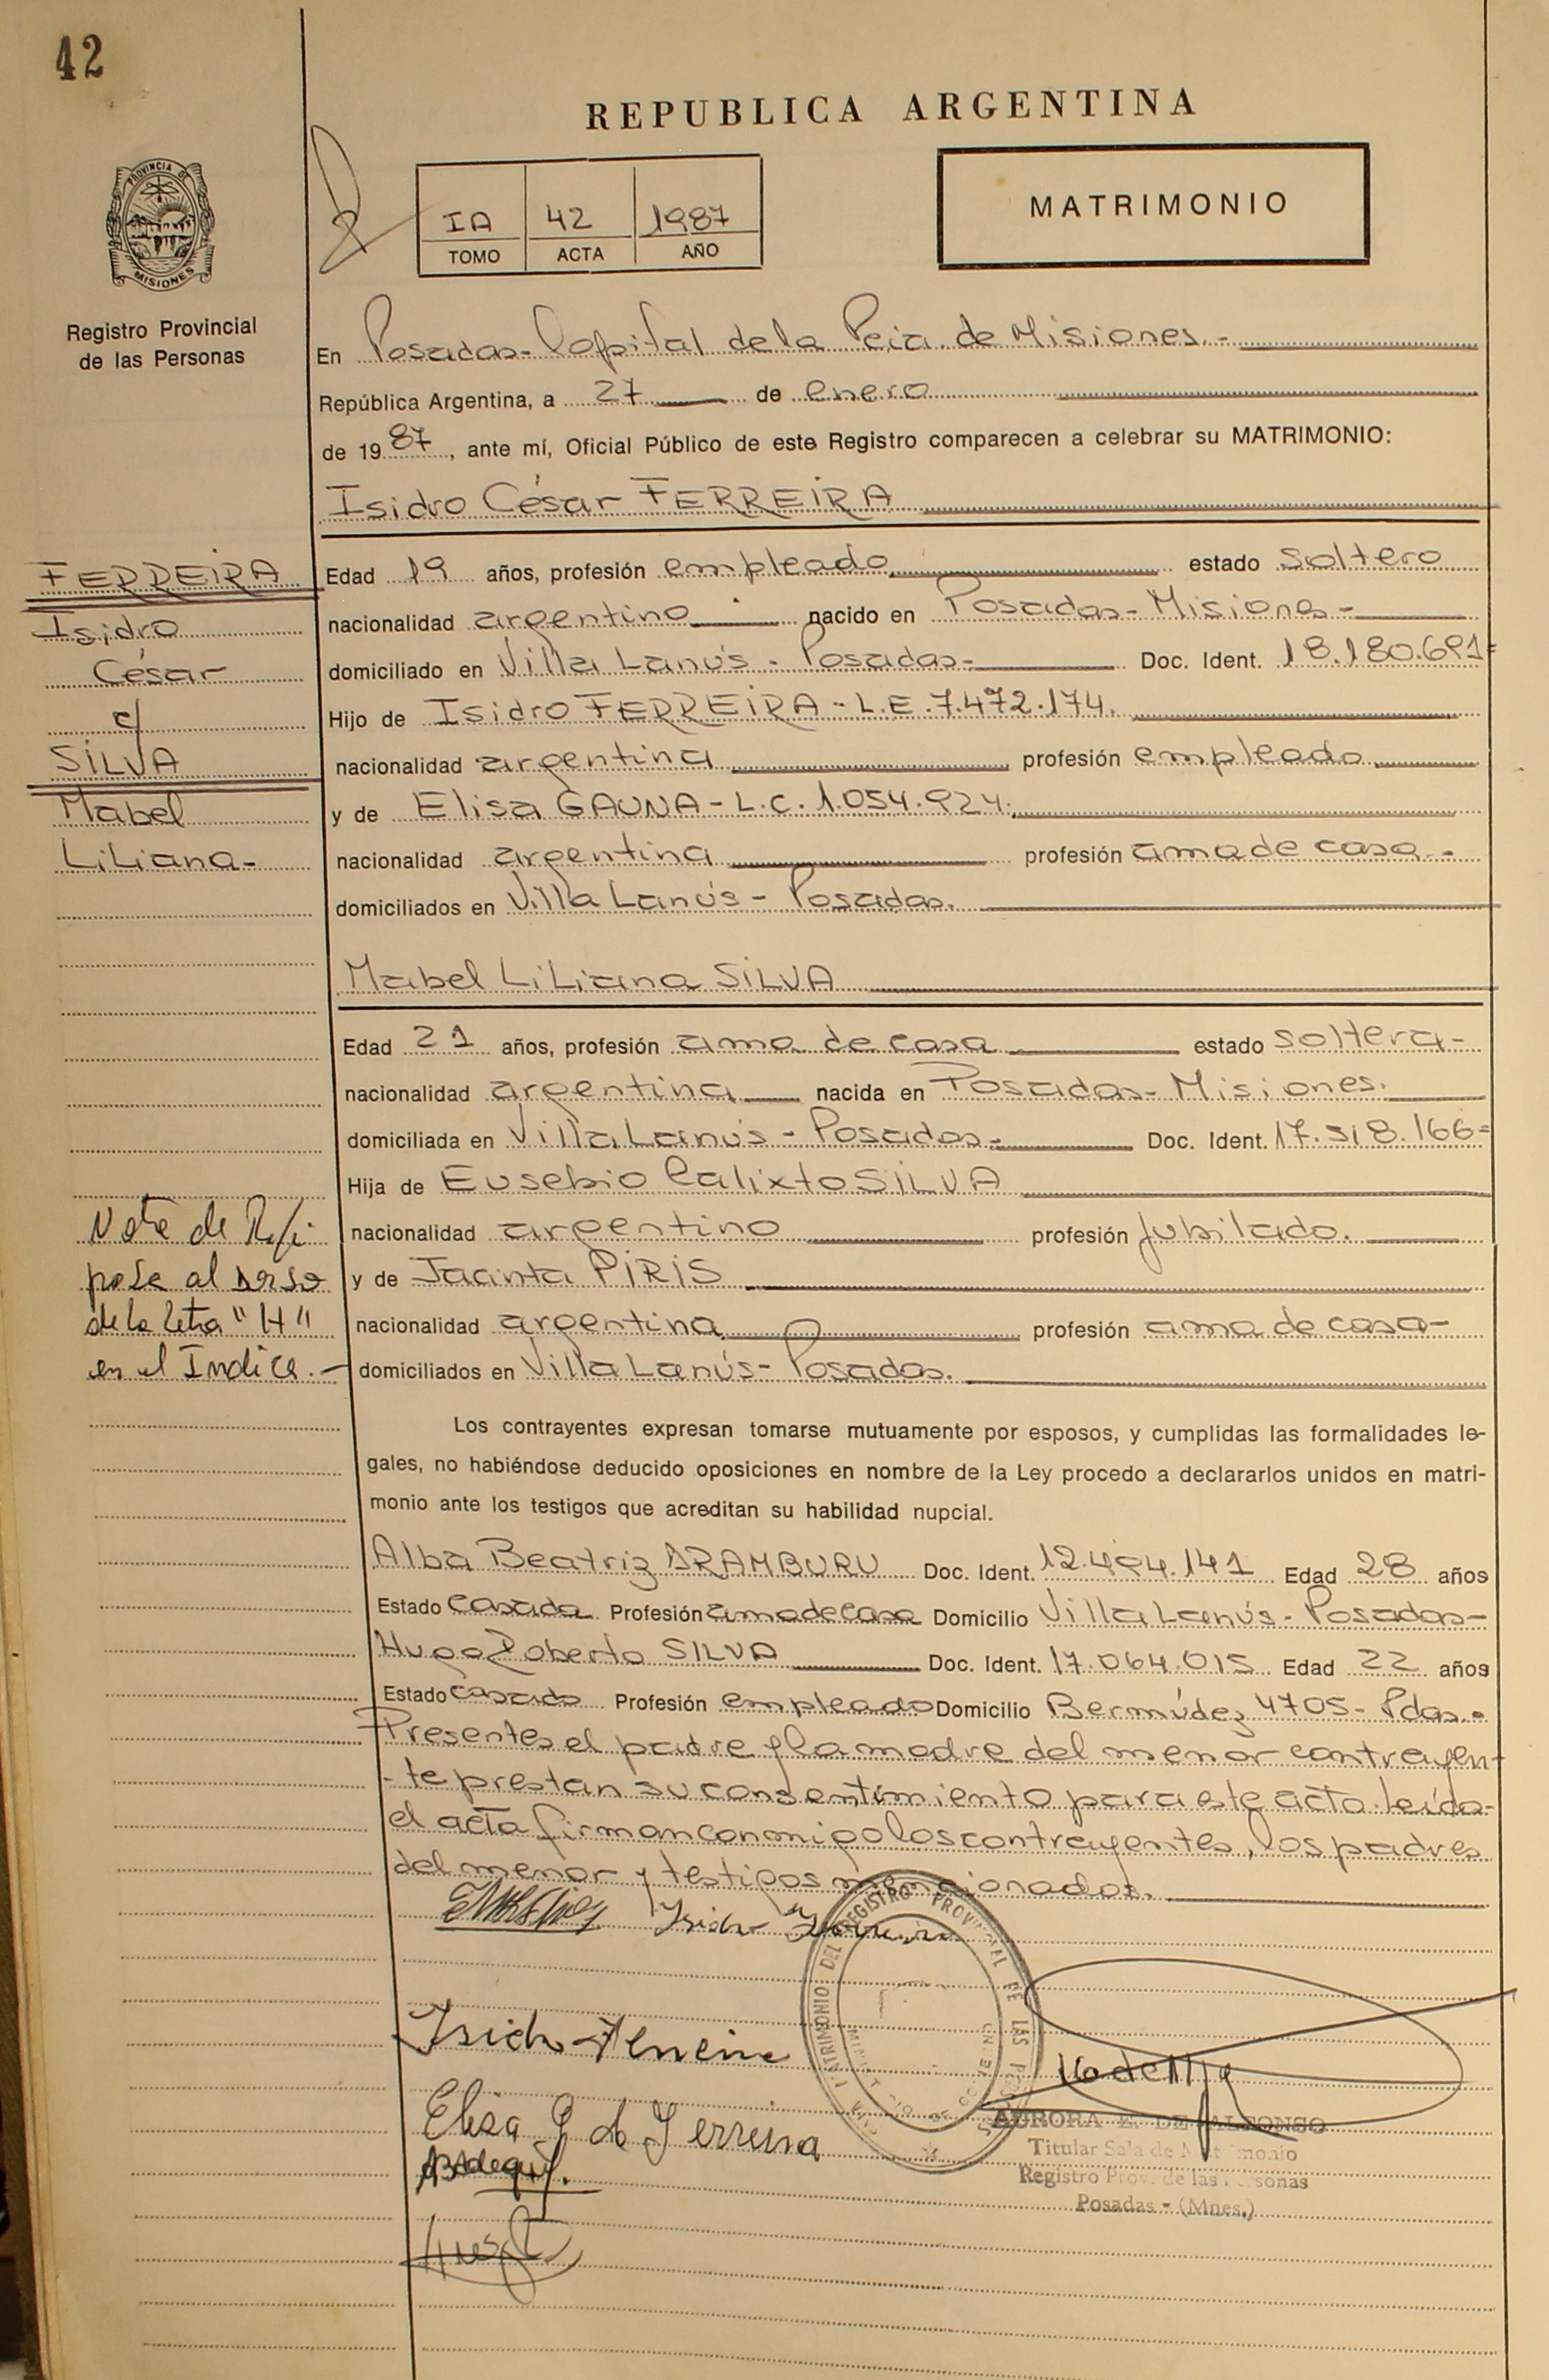 42
REPUBLICA ARGENTINA
PROVINCIA DE
MISIONES
IA 42 1987
TOMO ACTA AÑO
MATRIMONIO
Registro Provincial
de las Personas
En Posadas - Capital de la Pcia. de Misiones.-
República Argentina, a 27 de enero
de 1987, ante mí, Oficial Público de este Registro comparecen a celebrar su MATRIMONIO:
Isidro César FERREIRA
FERREIRA
Isidro
César
c/
SILVA
Mabel
Liliana-
Edad 19 años, profesión empleado estado soltero
nacionalidad argentino nacido en Posadas - Misiones -
domiciliado en Villa Lanús - Posadas - Doc. Ident. 18.180.691
Hijo de Isidro FERREIRA - L.E. 7.472.174.
nacionalidad argentina profesión empleado
y de Elisa GAUNA - L.C. 1.054.924.
nacionalidad argentina profesión ama de casa.-
domiciliados en Villa Lanús - Posadas.
Mabel Liliana SILVA
Edad 21 años, profesión ama de casa estado soltera-
nacionalidad argentina nacida en Posadas - Misiones.
domiciliada en Villa Lanús - Posadas - Doc. Ident. 17.518.166
Hija de Eusebio Calixto SILVA
nacionalidad argentino profesión jubilado.
y de Jacinta PIRIS
nacionalidad argentina profesión ama de casa-
domiciliados en Villa Lanús - Posadas.
Nota de
pasa al dorso
de la letra "H"
en el Indice.-
Los contrayentes expresan tomarse mutuamente por esposos, y cumplidas las formalidades le-
gales, no habiéndose deducido oposiciones en nombre de la Ley procedo a declararlos unidos en matri-
monio ante los testigos que acreditan su habilidad nupcial.
Alba Beatriz ARAMBURU Doc. Ident. 12.494.141 Edad 28 años
Estado casada Profesión ama de casa Domicilio Villa Lanús - Posadas-
Hugo Roberto SILVA Doc. Ident. 17.064.015 Edad 22 años
Estado casado Profesión empleado Domicilio Bermúdez 4705 - Pdas.-
Presentes el padre y la madre del menor contrayen-
-te prestan su consentimiento para este acto. leída
el acta firman conmigo los contrayentes, los padres
del menor y testigos mencionados.
Isidro Ferreira
Isidro Ferreira
Elisa G de Ferreira
REGISTRO PROVINCIAL DE LAS PERSONAS
AURORA E. DE ALFONSO
Titular Sala de Matrimonio
Registro Prov. de las Personas
Posadas - (Mnes.)